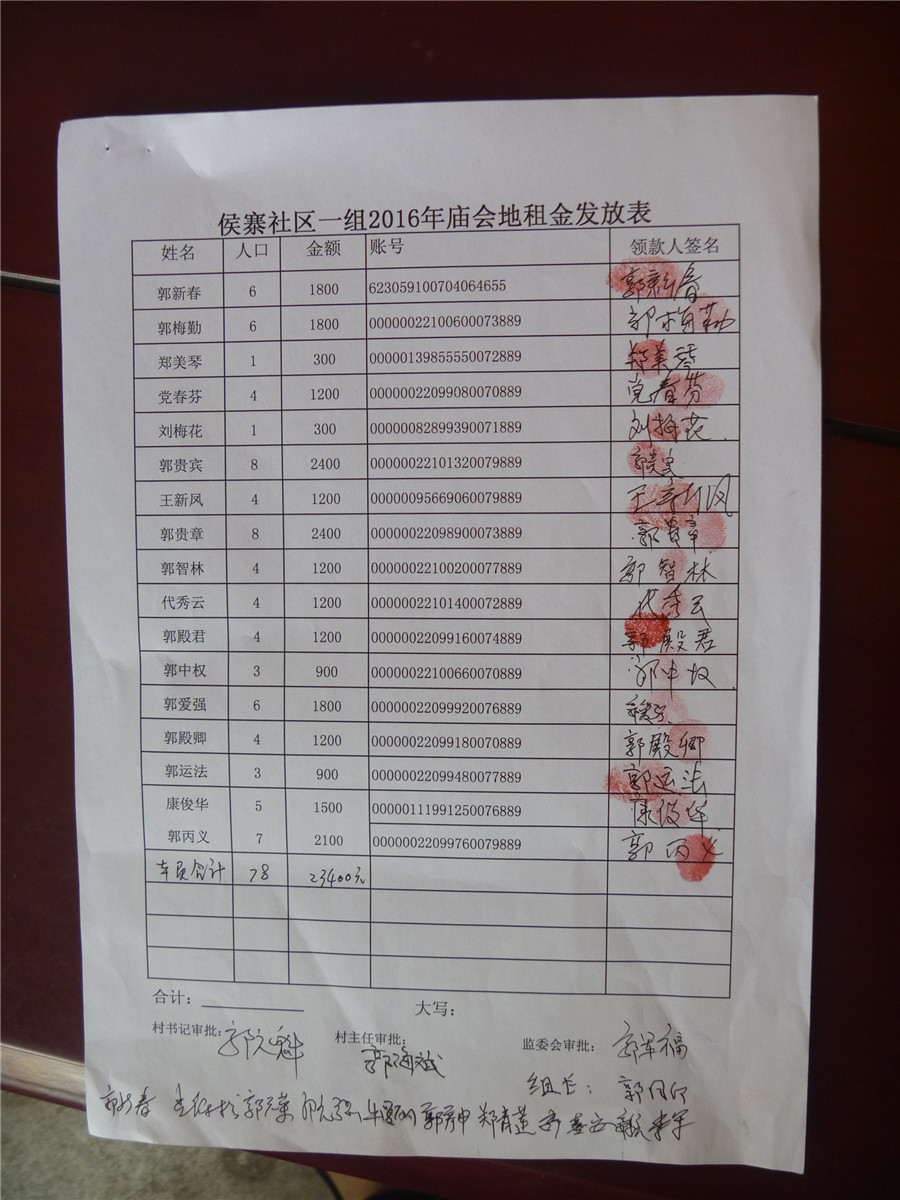 侯寨社区一组2016年庙会地租金发放表
姓名 人口 金额 账号 领款人签名
郭新春 6 1800 623059100704064655 郭新春
郭梅勤 6 1800 00000022100600073889 郭梅勤
郑美琴 1 300 00000139855550072889 郑美琴
党春芬 4 1200 00000022099080070889 党春芬
刘梅花 1 300 00000082899390071889 刘梅花
郭贵宾 8 2400 00000022101320079889 郭贵宾
王新凤 4 1200 00000095669060079889 王新凤
郭贵章 8 2400 00000022098900073889 郭贵章
郭智林 4 1200 00000022100200077889 郭智林
代秀云 4 1200 00000022101400072889 代秀云
郭殿君 4 1200 00000022099160074889 郭殿君
郭中权 3 900 00000022100660070889 郭中权
郭爱强 6 1800 00000022099920076889
郭殿卿 4 1200 00000022099180070889 郭殿卿
郭运法 3 900 00000022099480077889 郭运法
康俊华 5 1500 00000111991250076889 康俊华
郭丙义 7 2100 00000022099760079889 郭丙义
合计 78 23400元
合计： 大写：
村书记审批： 郭元魁 村主任审批： 郭海斌 监委会审批： 郭军福
组长： 郭
郭新春 郭 郑青莲